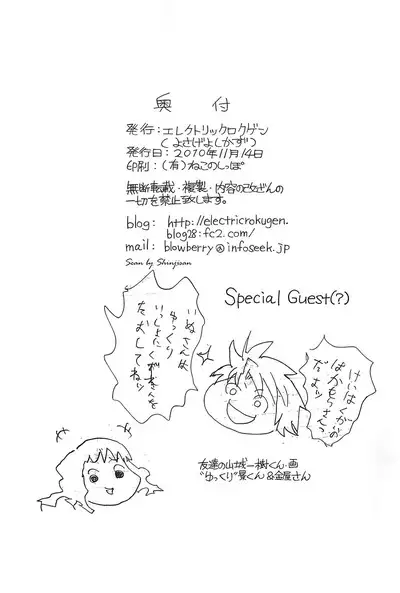 奥付
発行：エレクトリックロクゲン
（よさげよしかず）
発行日：2010年11月14日
印刷：（有）ねこのしっぽ
無断転載・複製・内容の改ざんの
一切を禁止致します。
blog: http://electricrokugen.
blog28.fc2.com/
mail: blowberry@infoseek.jp
Scan by Shinjisan
Special Guest(?)
だよッ
いぬさんは
ゆっくり
たおしてねッ
友達の山城一樹くん・画
"ゆっくり"景くん&金屋さん